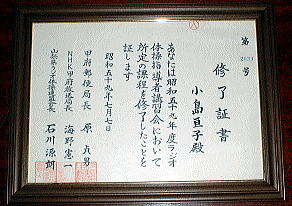 第
修了証書
小島亘子殿
あなたは昭和五十九年度ラジオ
体操指導者講習会において
所定の課程を修了したことを
証します
昭和五十九年七月七日
甲府郵便局長 原 貞男
NHK甲府放送局長 海野憲一
山梨県ラジオ体操連盟会長 石川源朗